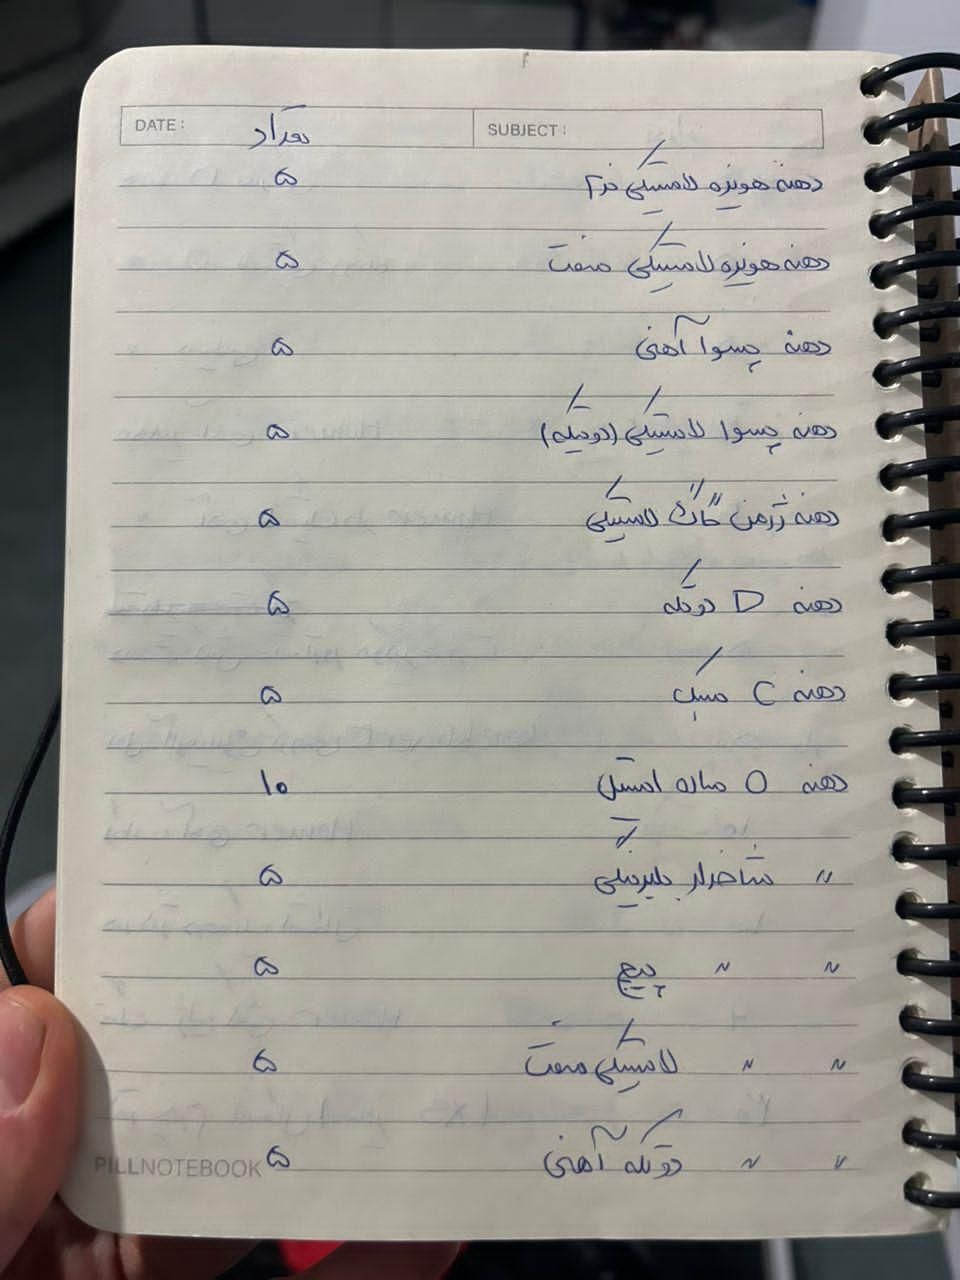 DATE: تعداد SUBJECT:
دهنه هویزه لاستیکی نرم ۵
دهنه هویزه لاستیکی سفت ۵
دهنه پسوا آهنی ۵
دهنه پسوا لاستیکی (دو تیکه) ۵
دهنه ژرمن گاگ لاستیکی ۵
دهنه D دو تکه ۵
دهنه C سبک ۵
دهنه O ساده استیل ۱۰
〃 شاخدار بلبرینگی ۵
〃 〃 پیچ ۵
〃 〃 لاستیکی سفت ۵
〃 〃 دو تکه آهنی ۵
PILLNOTEBOOK